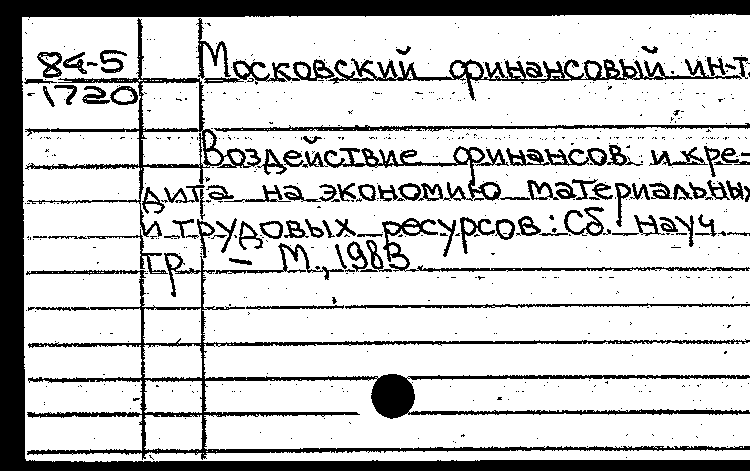 84-5
1720
Московский финансовый ин-т.
Воздействие финансов и кре-
дита на экономию материальных
и трудовых ресурсов: Сб. науч.
тр. — М., 1983.